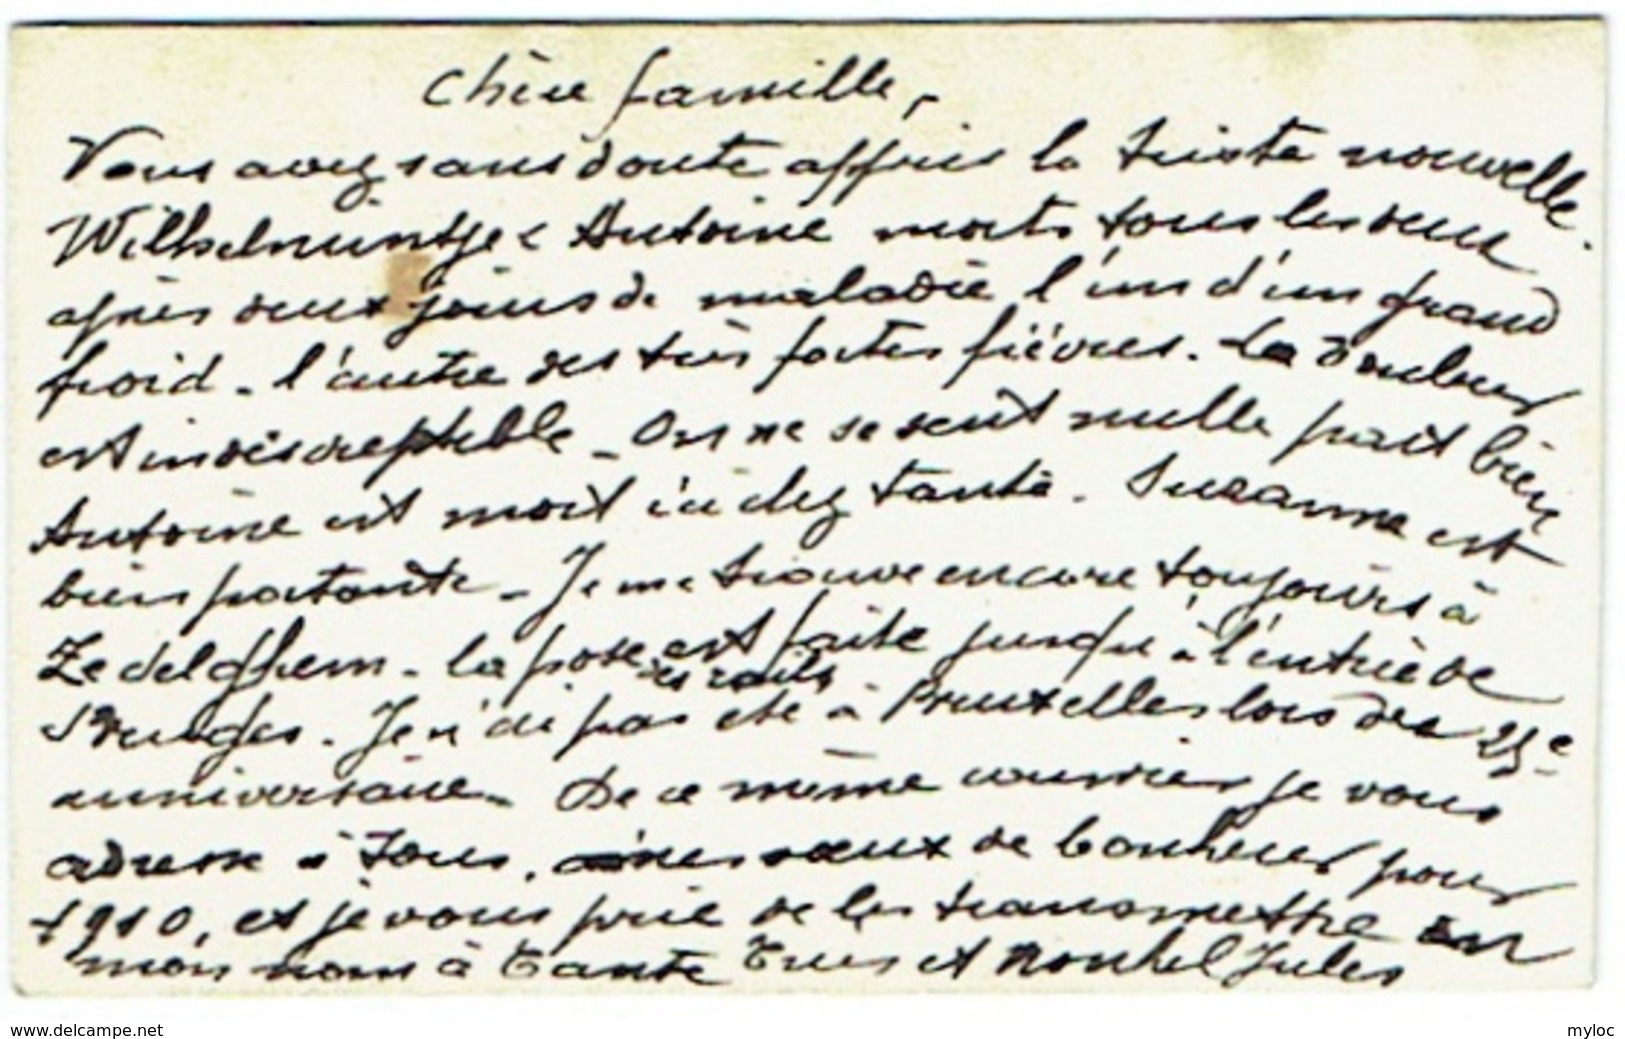 Chère famille,
Vous avez sans doute appris la triste nouvelle.
Wilhelmintje & Antoine morts tous les deux
après deux jours de maladie l'un d'un grand
froid - l'autre des très fortes fièvres. La douleur
est indescreptible - On ne se sent nulle part bien
Antoine est mort ici chez tante. Suzanne est
bien portante - Je me trouve encore toujours à
Zedelghem - la pose est faite jusqu'à l'entrée de
des rails
Bruges. Je n'ai pas été à Bruxelles lors des 25e
anniversaire - De ce même courrier je vous
adresse à tous, mes vœux de bonheur pour
1910, et je vous prie de les transmettre en
mon nom à Tante Trees et Nonkel Jules
www.delcampe.net
myloc